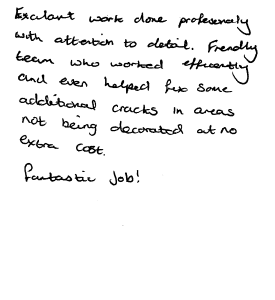 Excellent work done professionally
with attention to detail. Friendly
team who worked efficiently
and even helped fix some
additional cracks in areas
not being decorated at no
extra cost.
Fantastic job!